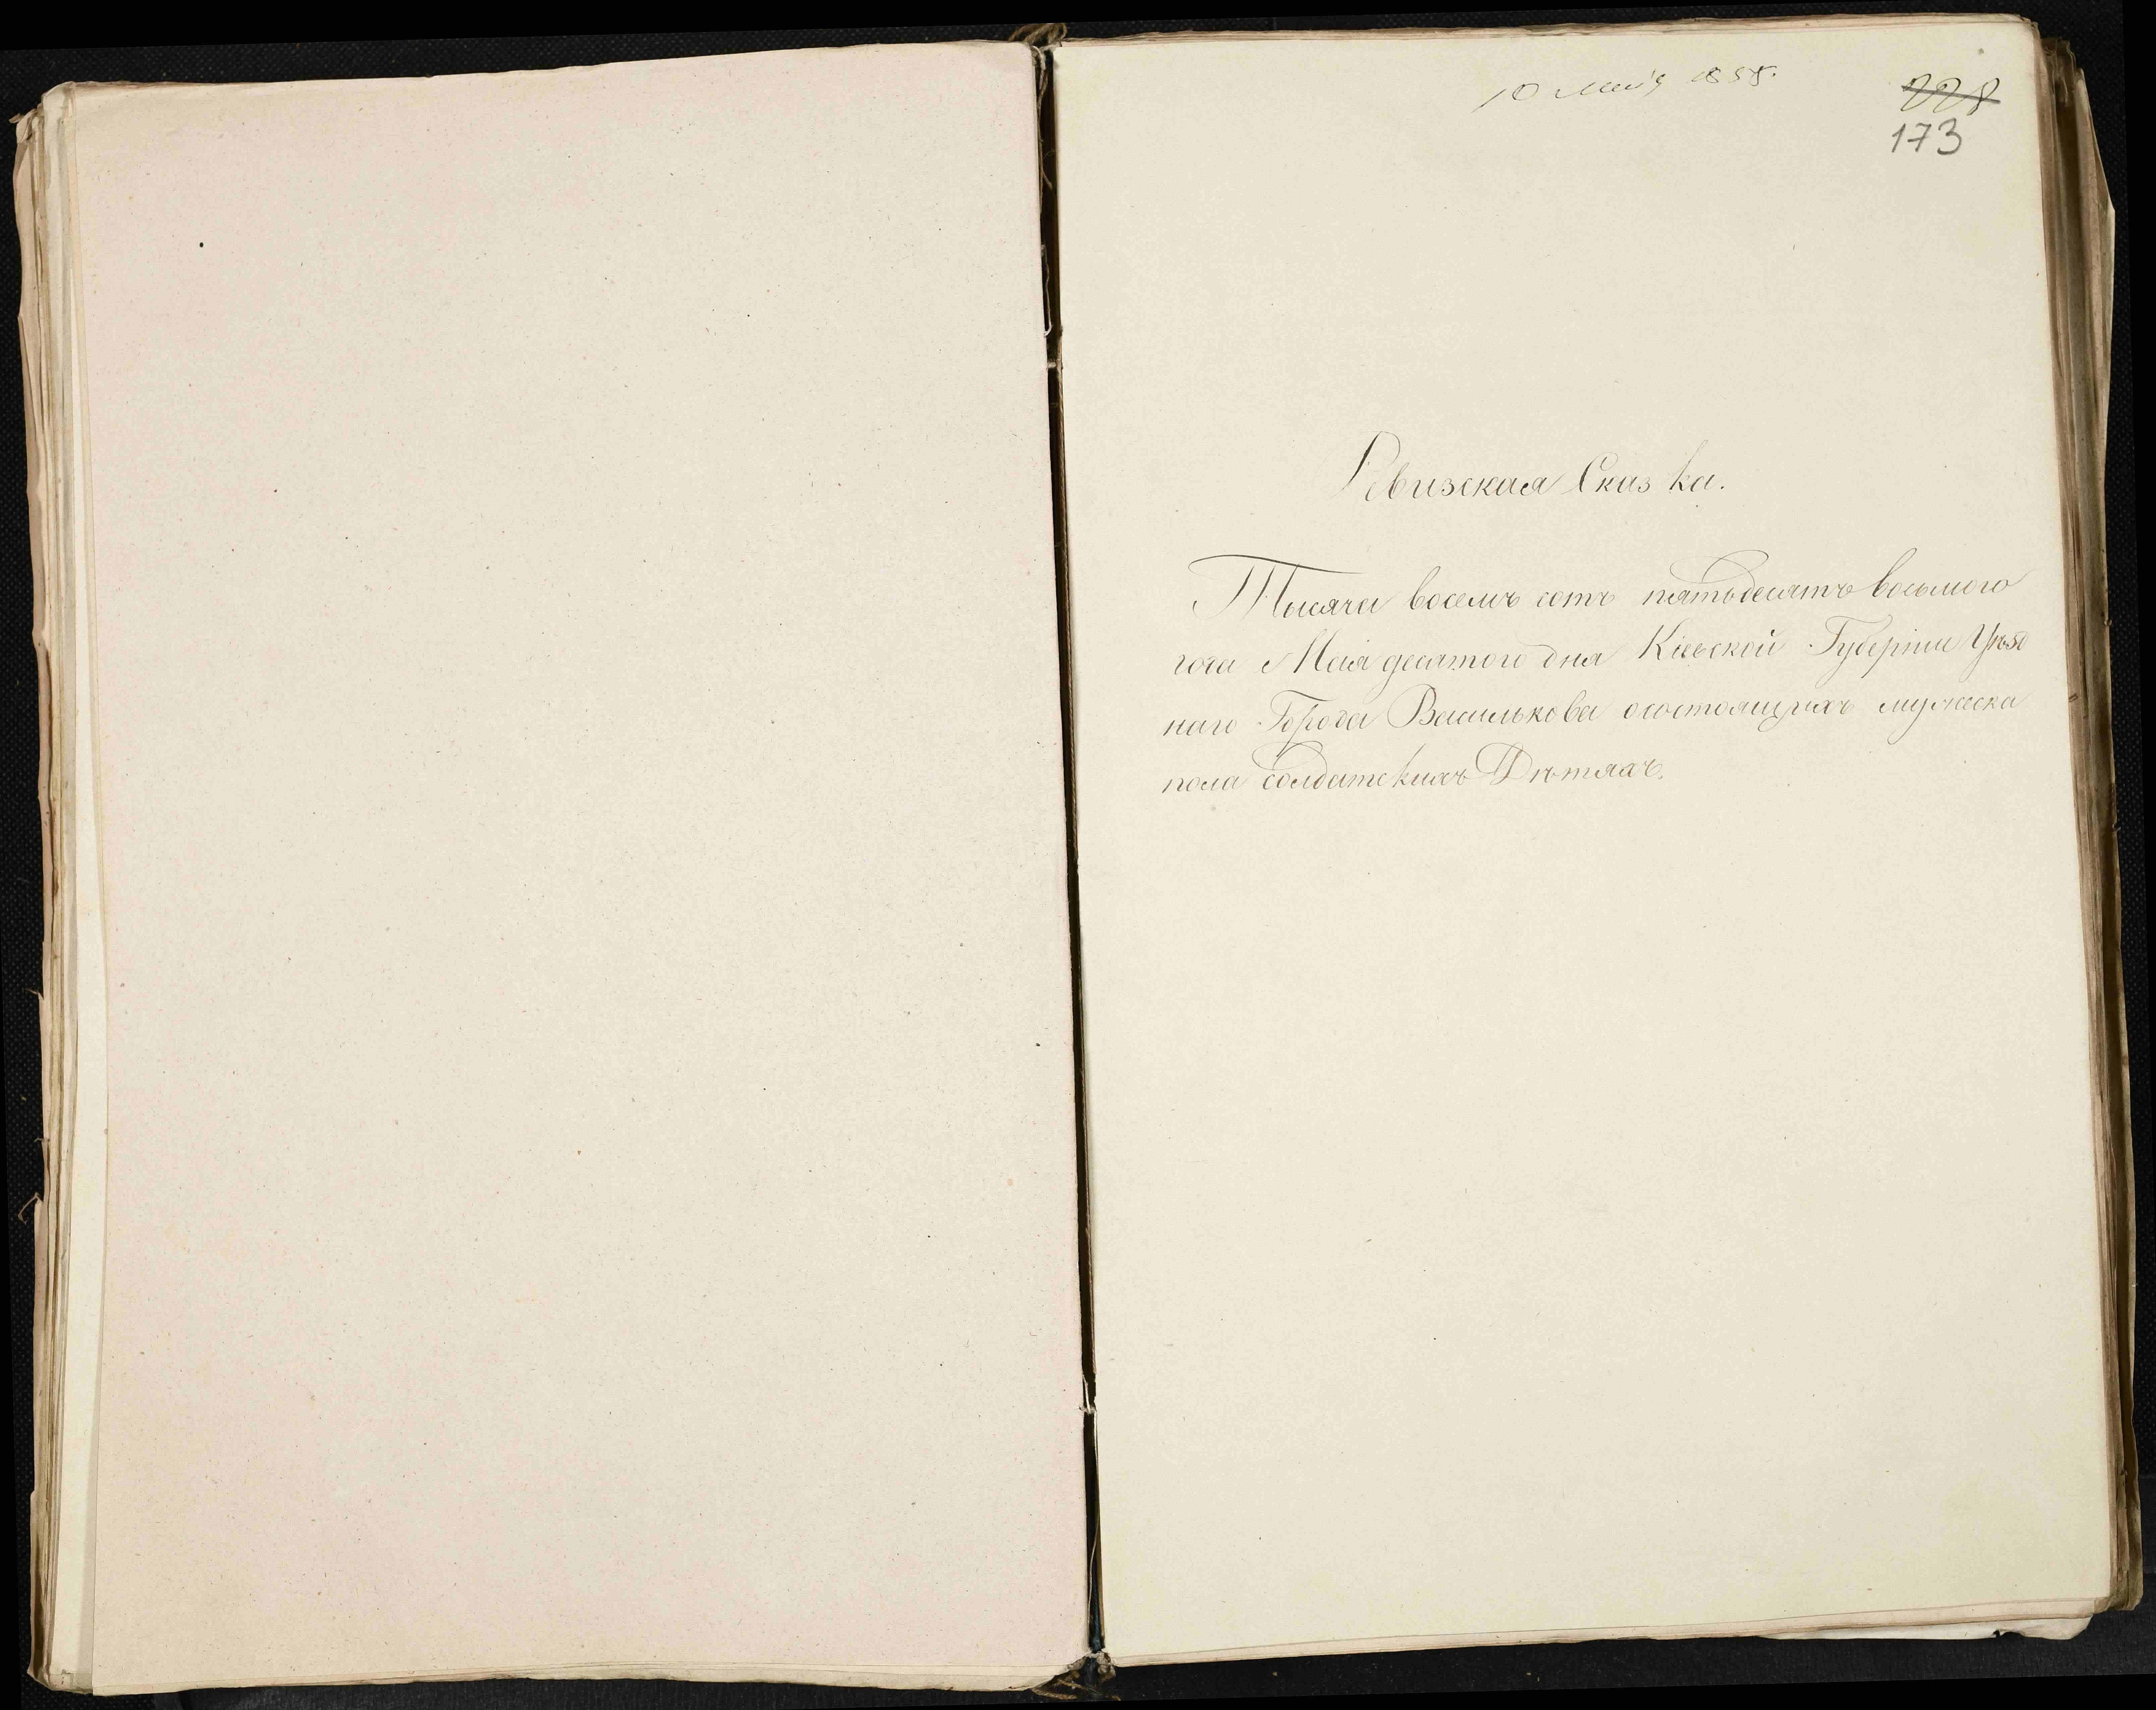 10 мая 1858.
228
173
Ревизская Сказка.
Тысяча восемъ сотъ пятьдесятъ восьмого
года Маія десятого дня Кіевской Губерніи Уѣзд
наго Города Василькова осостоящихъ мужеска
пола солдатскихъ Дѣтяхъ.